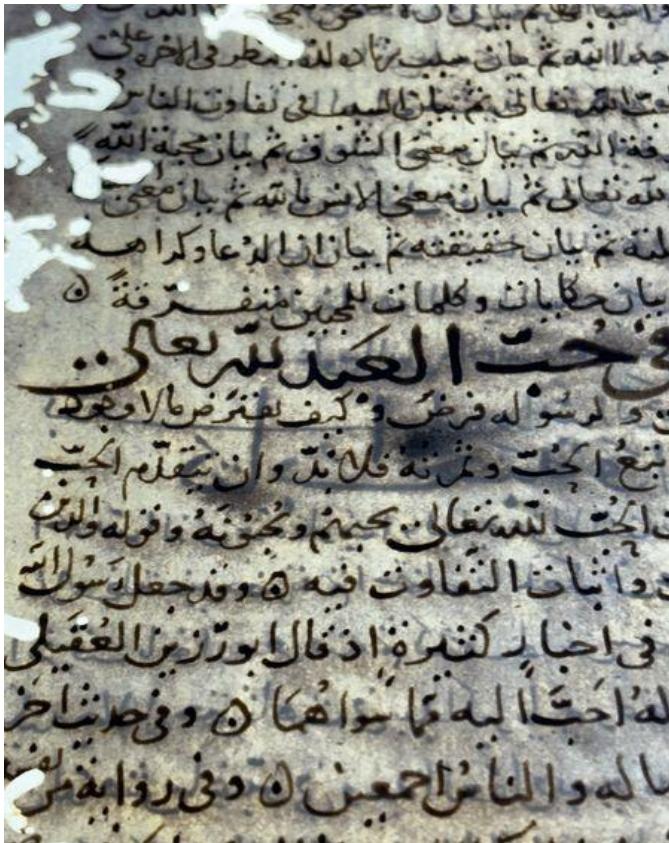 جده الله ثم بيان سبب زيادة لذة النظر في الآخرة على
الله تعالى ثم بيان السبب في تفاوت الناس
فة الله ثم بيان معنى الشوق ثم بيان محبة الله
لله تعالى ثم بيان معنى الانس بالله ثم بيان معنى
ثم بيان حقيقته ثم بيان ان الدعا وكراهة
بيان حكايات وكلمات للمحبين متفرقة
في حُبّ العَبد للّه تعالى
و لرسوله فرض و كيف يفترض مالا وجود
يتبع الحب وثمرته فلا بدّ وان يتقدّم الحبّ
الحُب لله تعالى يحبهم ويحبّونهُ وقوله والذين
اثبات التفاوت فيه ۝ وقد جعل رسول الله
في اخبار كثيرة اذ قال ابو رزين العُقيلى
له احبّ اليه مما سواهما ۝ وفي حديث اخر
ماله والناس اجمعين ۝ وفي رواية من نفسه